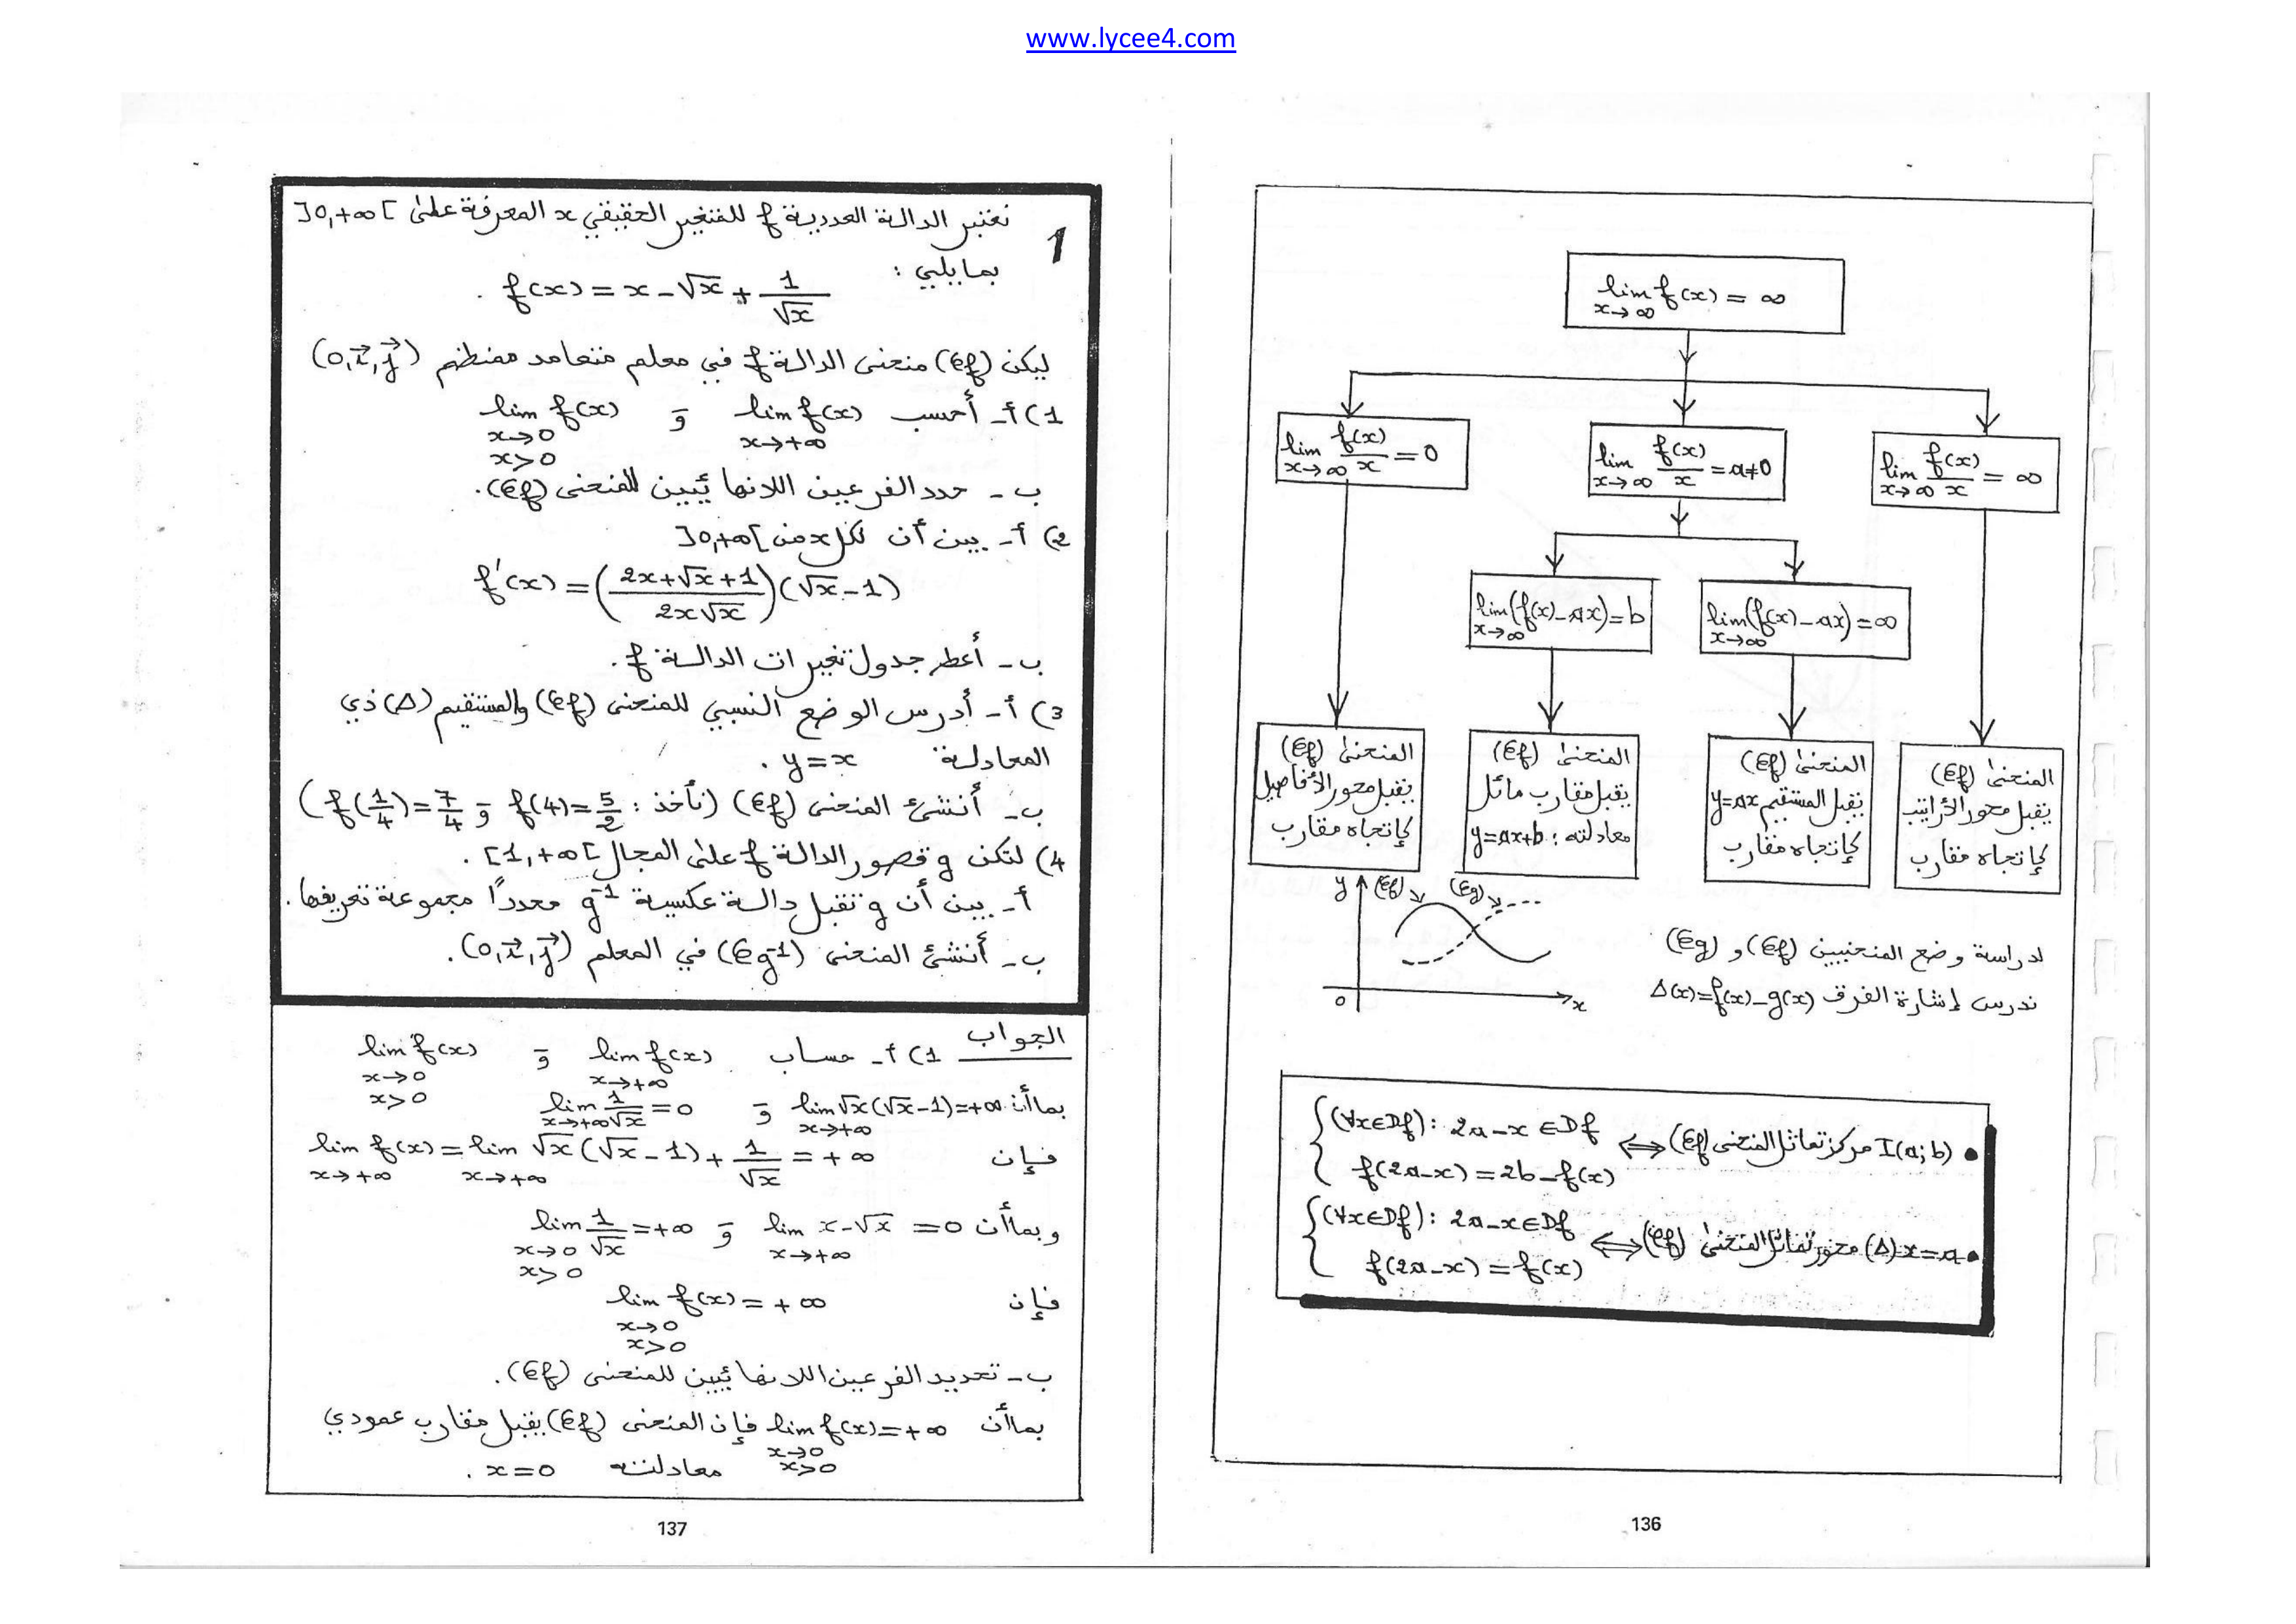 www.lycee4.com
lim f(x) = ∞
x→∞
lim f(x)/x = ∞
x→∞
lim f(x)/x = a≠0
x→∞
lim f(x)/x = 0
x→∞
lim(f(x)-ax)=∞
x→∞
lim(f(x)-ax)=b
x→∞
المنحنى (Cf)
يقبل محور الأراتيب
كإتجاه مقارب
المنحنى (Cf)
يقبل المستقيم y=ax
كإتجاه مقارب
المنحنى (Cf)
يقبل مقارب مائل
معادلته : y=ax+b
المنحنى (Cf)
يقبل محور الأفاصيل
كإتجاه مقارب
y (Cf) (Cg)
o x
لدراسة وضع المنحنيين (Cf) و (Cg)
ندرس إشارة الفرق Δ(x)=f(x)-g(x)
• I(a;b) مركز تماثل المنحنى (Cf) ⇔ {(∀x∈Df): 2a-x∈Df
f(2a-x)=2b-f(x)
• x=a (Δ) محور تماثل المنحنى (Cf) ⇔ {(∀x∈Df): 2a-x∈Df
f(2a-x)=f(x)
136
1
نعتبر الدالة العددية f للمتغير الحقيقي x المعرفة على ]0,+∞[
بمايلي :
f(x) = x - √x + 1/√x .
ليكن (Cf) منحنى الدالة f في معلم متعامد ممنظم (o,i⃗,j⃗)
1) أ- أحسب lim f(x) و lim f(x)
x→+∞ x→0
x>0
ب- حدد الفرعين اللانهائيين للمنحنى (Cf).
2) أ- بين أن لكل x من ]0,+∞[
f'(x) = ((2x+√x+1)/(2x√x))(√x-1)
ب- أعط جدول تغيرات الدالة f.
3) أ- أدرس الوضع النسبي للمنحنى (Cf) والمستقيم (Δ) ذي
المعادلة y=x .
ب- أنشئ المنحنى (Cf) (نأخذ : f(4)=5/2 و f(1/4)=7/4)
4) لتكن g قصور الدالة f على المجال [1,+∞[ .
أ- بين أن g تقبل دالة عكسية g⁻¹ محدداً مجموعة تعريفها.
ب- أنشئ المنحنى (Cg⁻¹) في المعلم (o,i⃗,j⃗).
الجواب 1) أ- حساب lim f(x) و lim f(x)
x→+∞ x→0
x>0
بما أن lim √x(√x-1)=+∞ و lim 1/√x = 0
x→+∞ x→+∞
فإن lim f(x) = lim √x(√x-1) + 1/√x = +∞
x→+∞ x→+∞
وبما أن lim x-√x = 0 و lim 1/√x = +∞
x→+∞ x→0
x>0
فإن lim f(x) = +∞
x→0
x>0
ب- تحديد الفرعين اللانهائيين للمنحنى (Cf).
بما أن lim f(x)=+∞ فإن المنحنى (Cf) يقبل مقارب عمودي
x→0
x>0 معادلته x=0 .
137